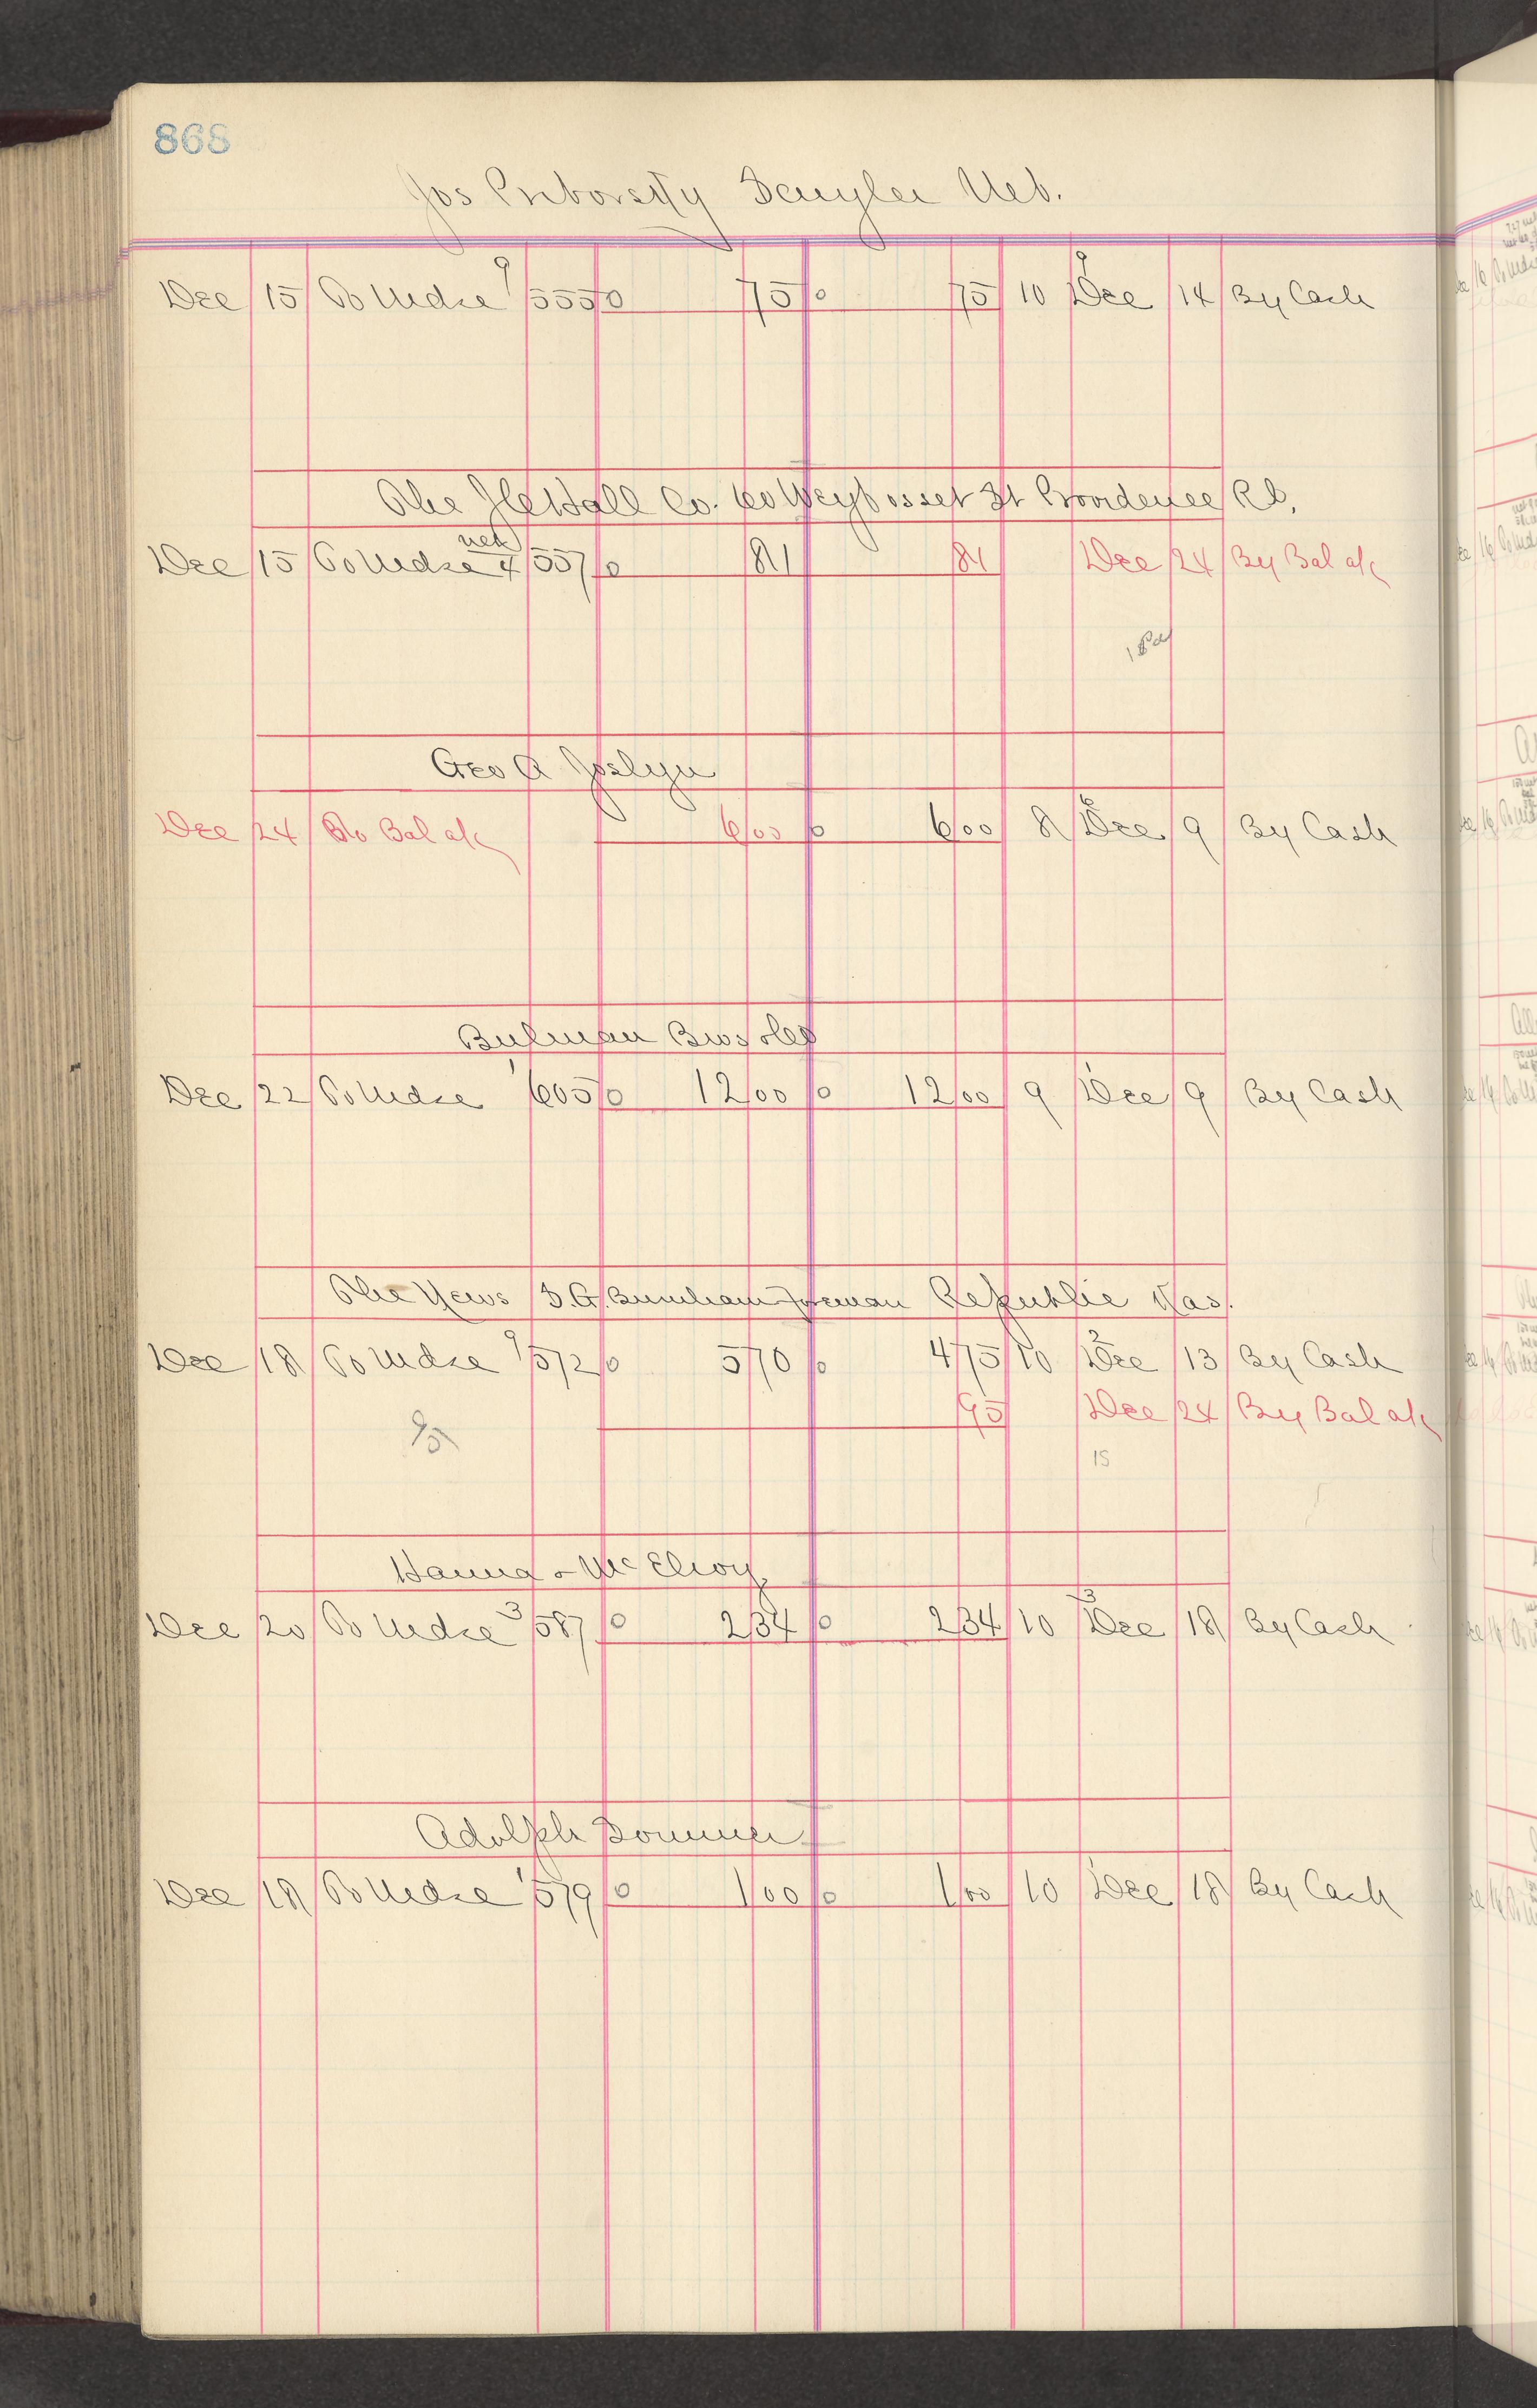 868
Jos Neb.
Dec 15 To Mdse 9 555 0 75 0 75 10 9 Dec 14 By Cash
The Hall Co. 60 Weybosset St Providence R.I.
Dec 15 To Mdse net 4 557 0 81 81 Dec 24 By Bal a/c
Geo A Joslyn
Dec 24 To Bal a/c 6 00 0 6 00 8 6 Dec 9 By Cash
Bulman Bros
Dec 22 To Mdse 1 605 0 12 00 0 12 00 9 1 Dec 9 By Cash
The News D.G. Burnham Foreman Republic Kas.
Dec 18 To Mdse 9 572 0 5 70 0 4 75 10 2 Dec 13 By Cash
95 Dec 24 By Bal a/c
95
15
Hanna & McElroy
Dec 20 To Mdse 3 587 0 2 34 0 2 34 10 3 Dec 18 By Cash
Adolph Sommer
Dec 18 To Mdse 1 579 0 1 00 0 1 00 10 1 Dec 18 By Cash